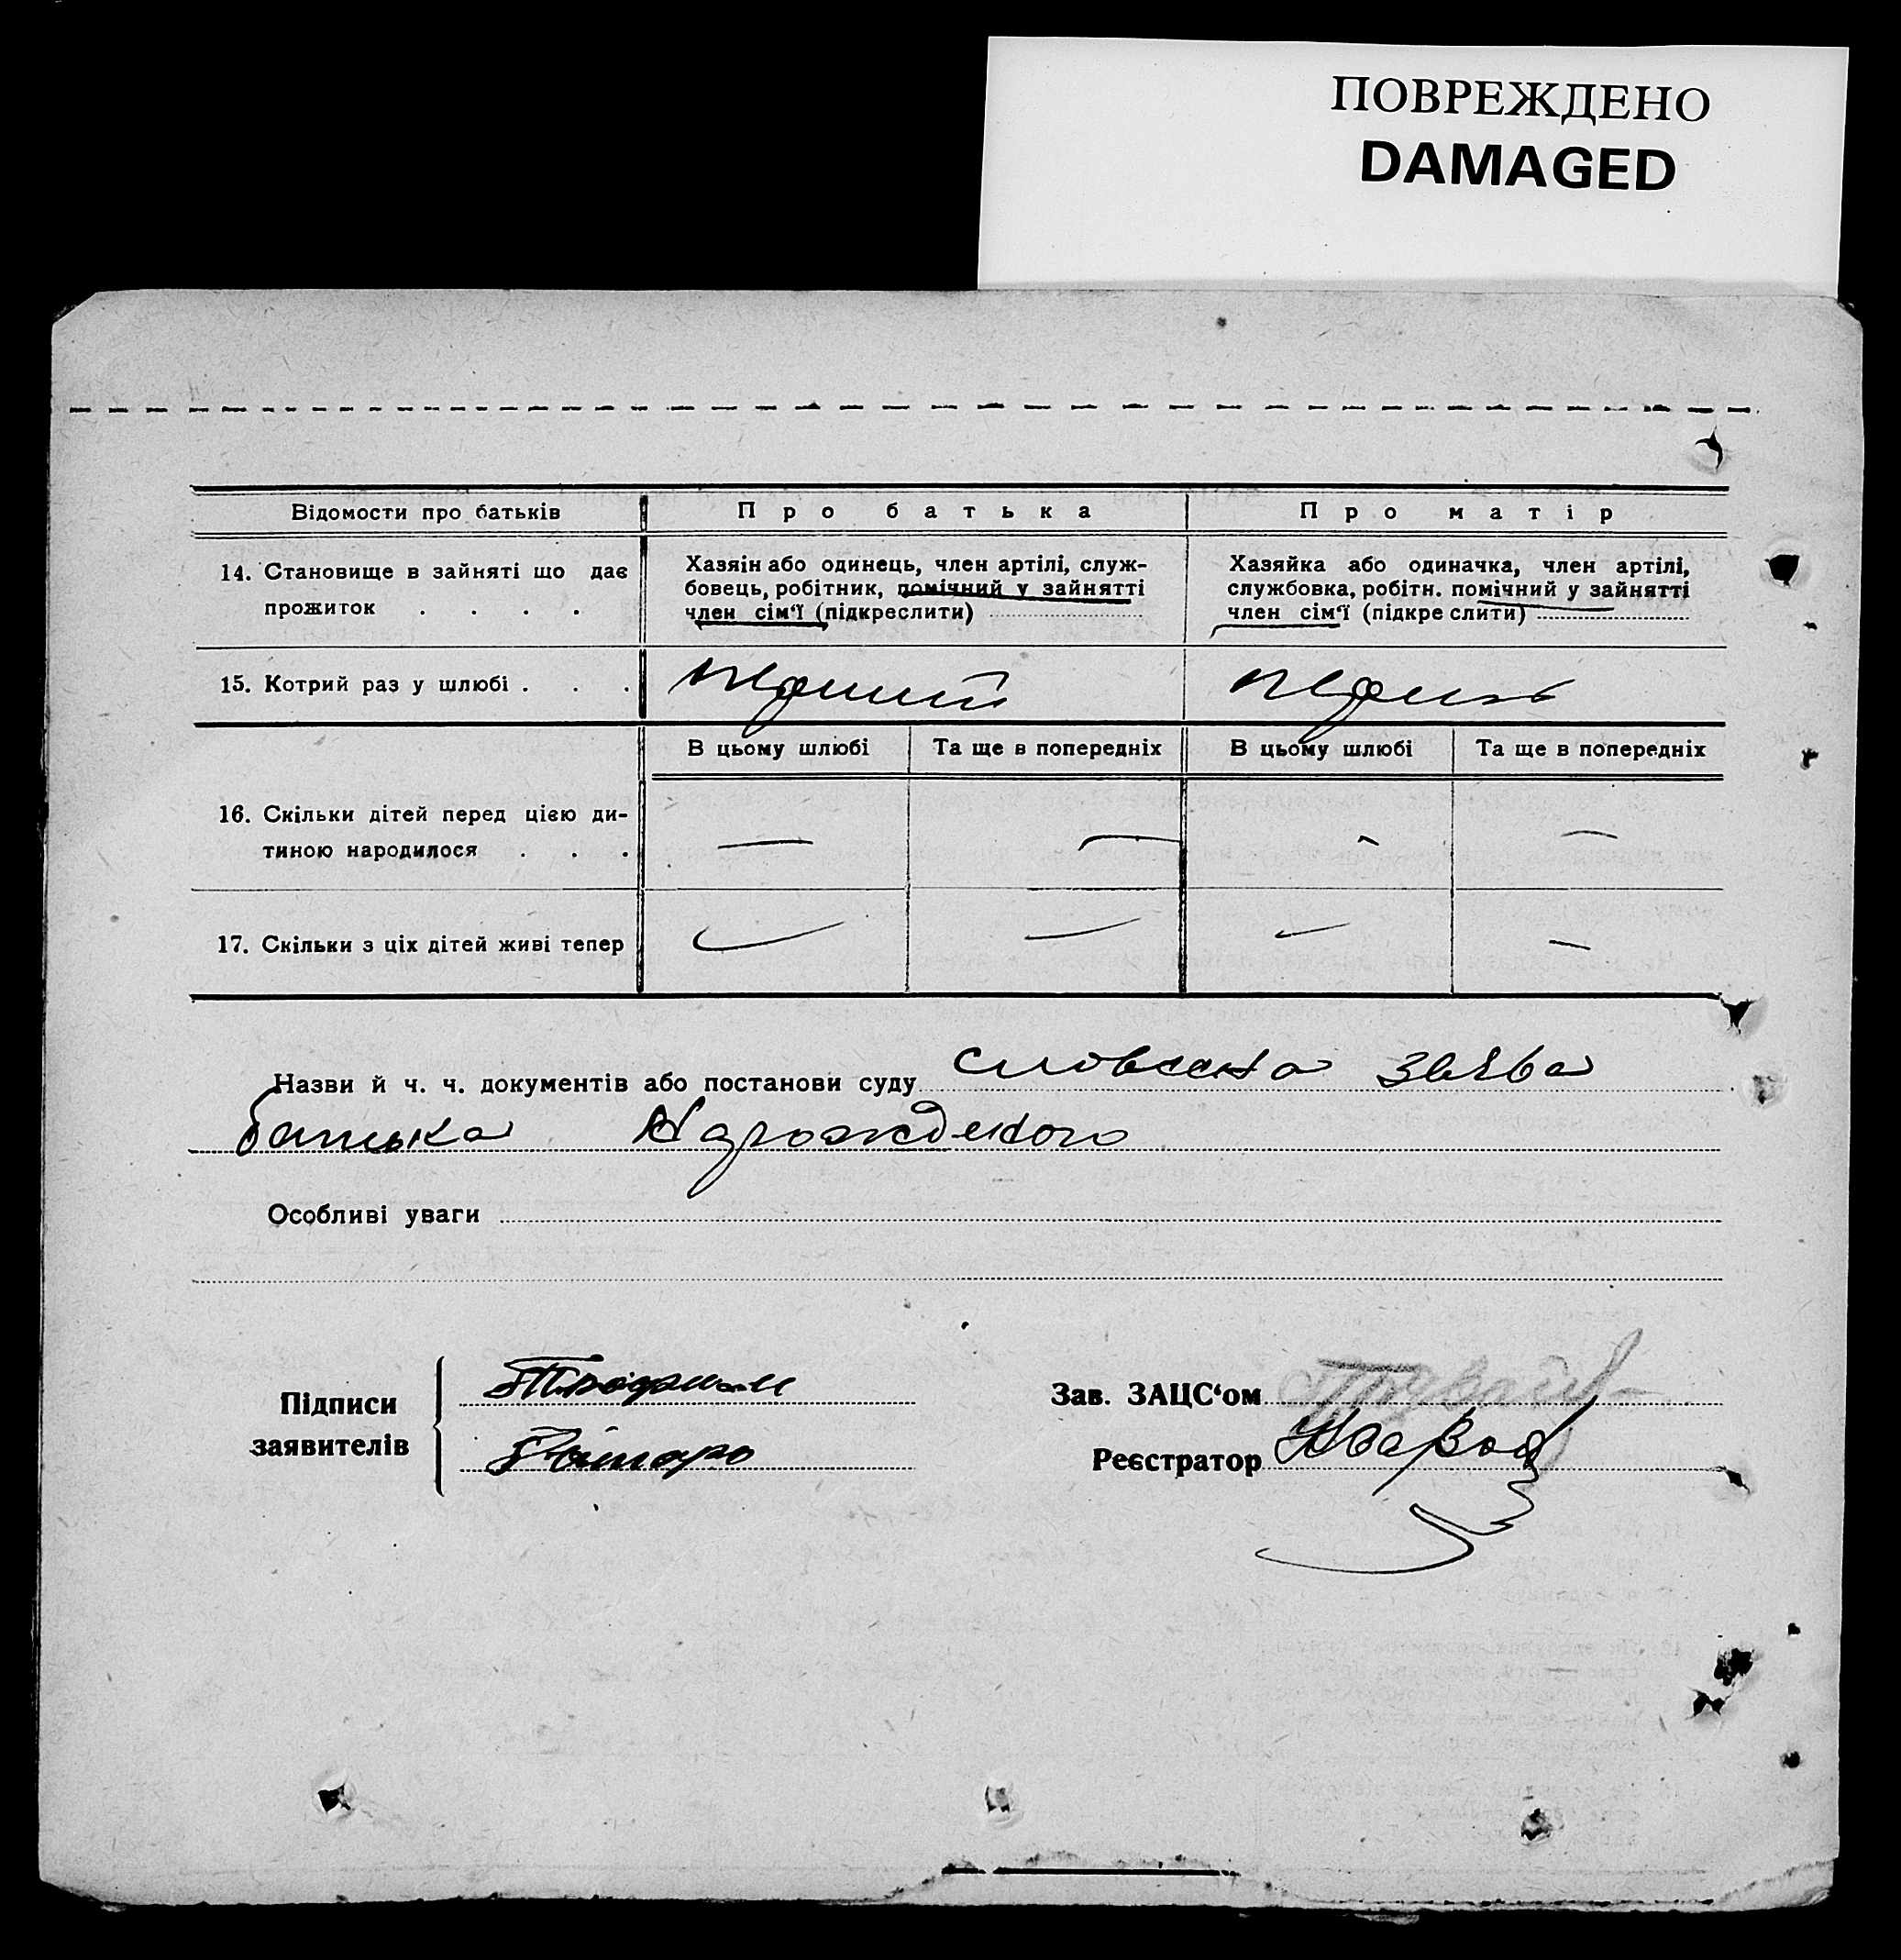 ПОВРЕЖДЕНО
DAMAGED
Відомости про батьків
Про батька
Про матір
14. Становище в зайняті що дає
прожиток . . . .
Хазяїн або одинець, член артілі, служ-
бовець, робітник, помічний у зайнятті
член сім‘ї (підкреслити)
Хазяйка або одиначка, член артілі,
службовка, робітн. помічний у зайнятті
член сім‘ї (підкре слити)
15. Котрий раз у шлюбі . . .
перший
перший
В цьому шлюбі
Та ще в попередніх
В цьому шлюбі
Та ще в попередніх
16. Скільки дітей перед цією ди-
тиною народилося . . .
— — — —
17. Скільки з ціх дітей живі тепер
— — — —
Назви й ч. ч. документів або постанови суду словесна заява
батька Нарожденого
Особливі уваги
Підписи
заявителів
Зав. ЗАЦС‘ом
Реєстратор